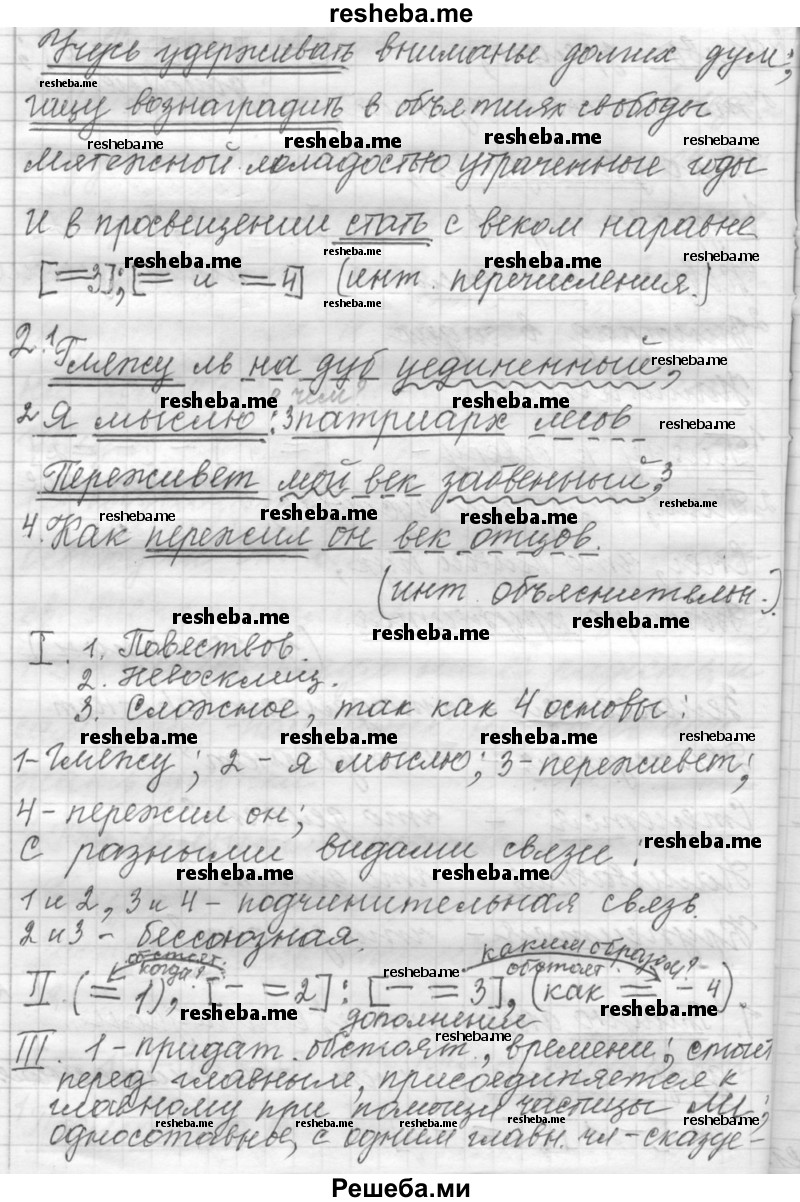 resheba.me
Учусь удерживать вниманье долгих дум;
ищу вознаградить в объятиях свободы
мятежной младостью утраченные годы
и в просвещении стать с веком наравне
[= 3]; [= и = 4] (инт. перечисления.)
2. ¹Гляжу ль на дуб уединенный,
2 Я мыслю: 3 патриарх лесов
Переживет мой век забвенный,³
4. Как пережил он век отцов.
(инт. объяснительн.).
I. 1. Повествов.
2. Невосклиц.
3. Сложное, так как 4 основы:
1-Гляжу; 2 - я мыслю; 3-переживет;
4 - пережил он;
С разными видами связи:
1 и 2, 3 и 4 - подчинительная связь.
2 и 3 - бессоюзная.
обстоят. когда? каким образом? обстоят.
II (= 1), [- = 2]: [- = 3], (как = - 4).
дополнение
III. 1 - придат. обстоят., времени; стоит
перед главным, присоединяется к
главному при помощи частицы ли;
односотавное, с одним главн. чл - сказуе-
Решеба.ми